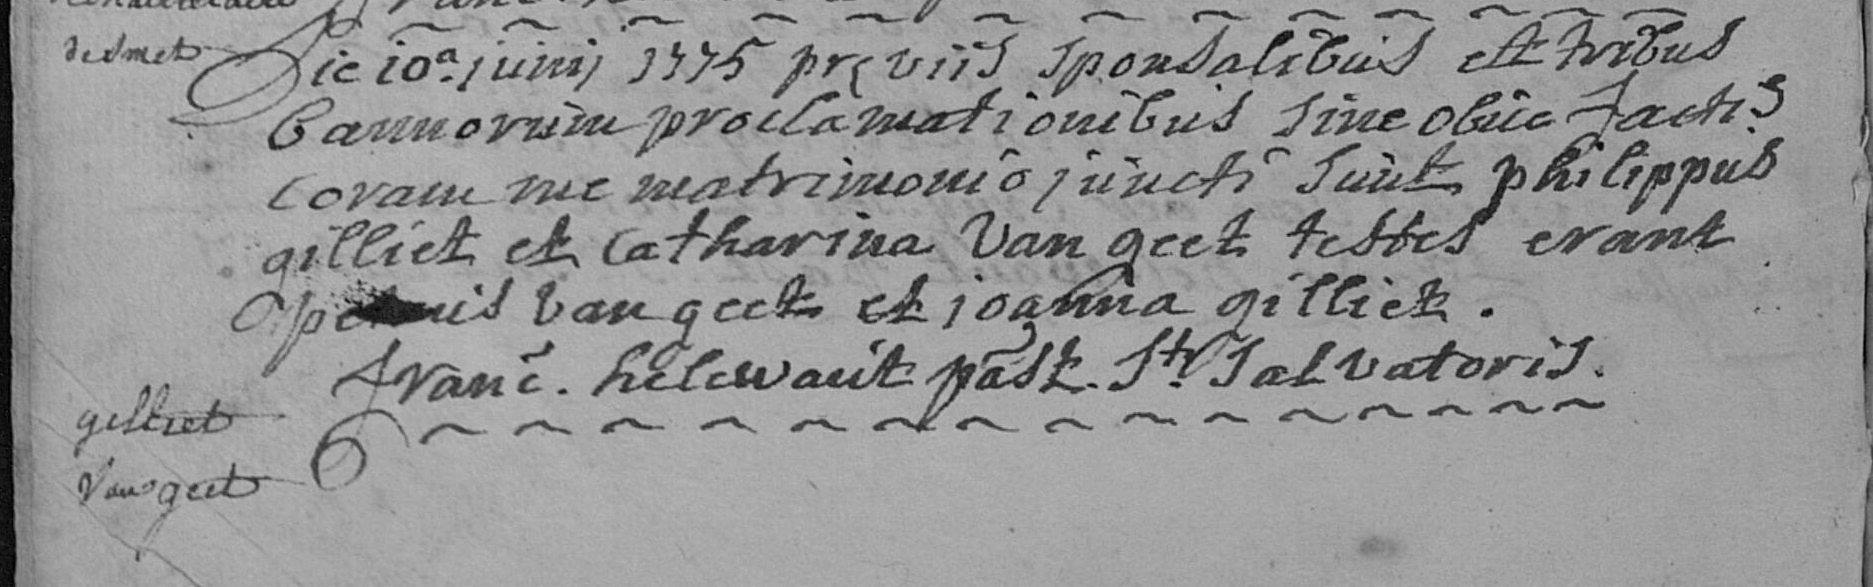 desmet
Die 10a. junij 1775 pręviis sponsalibus et tribus
bannorum proclamationibus sine obice factis
coram me matrimonio juncti sunt philippus
gilliet et catharina van geet testes erant
petrus van geet et joanna gilliet.
franc. helewaut past. Sti Salvatoris.
gilliet
van geet